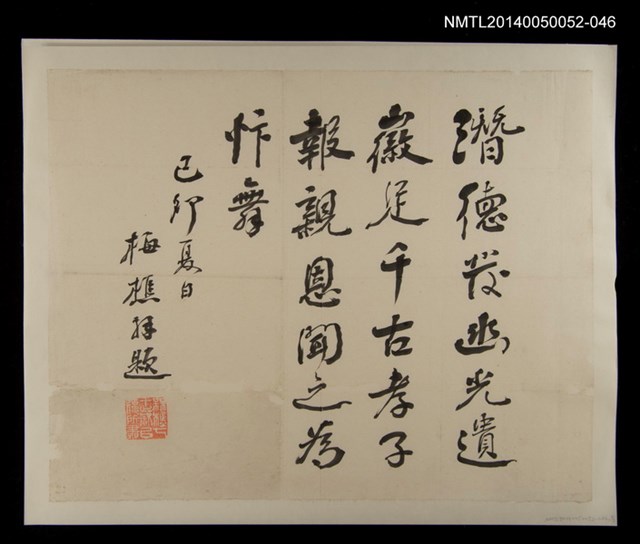 NMTL20140050052-046
潛德發幽光遺
徽足千古孝子
報親恩聞之為
忭舞
己卯夏日
梅樵拜題